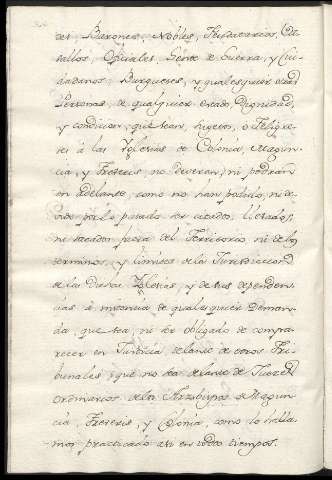 des Barones, Nobles, Feudatarios, Va-
sallos, Oficiales, Gente de Guerra, y Ciu-
dadanos, Burgueses, y qualesquier otras
Personas, de qualquier estado, Dignidad,
y condicion, que sean, sugetos, o Feligre-
ses á las Yglesias de Colonia, Magun-
cia, y Treveris no deveran, ni podran
en adelante, como no han podido, ni de-
vido por lo pasado ser citados, llevados,
ni sacados fuera del Territorio ni de los
terminos, y limites de la Jurisdiccion
de las dichas Yglesias, y de sus dependen-
cias á instancia de qualesquier Deman-
da, que sea, ni ser obligado de compa-
recer en Justicia delante de otros Tri-
bunales, que no sea delante de Jueces
Ordinarios de los Arzobispos de Magun-
cia, Treveris, y Colonia, como lo halla-
mos practicado asi en todos tiempos.